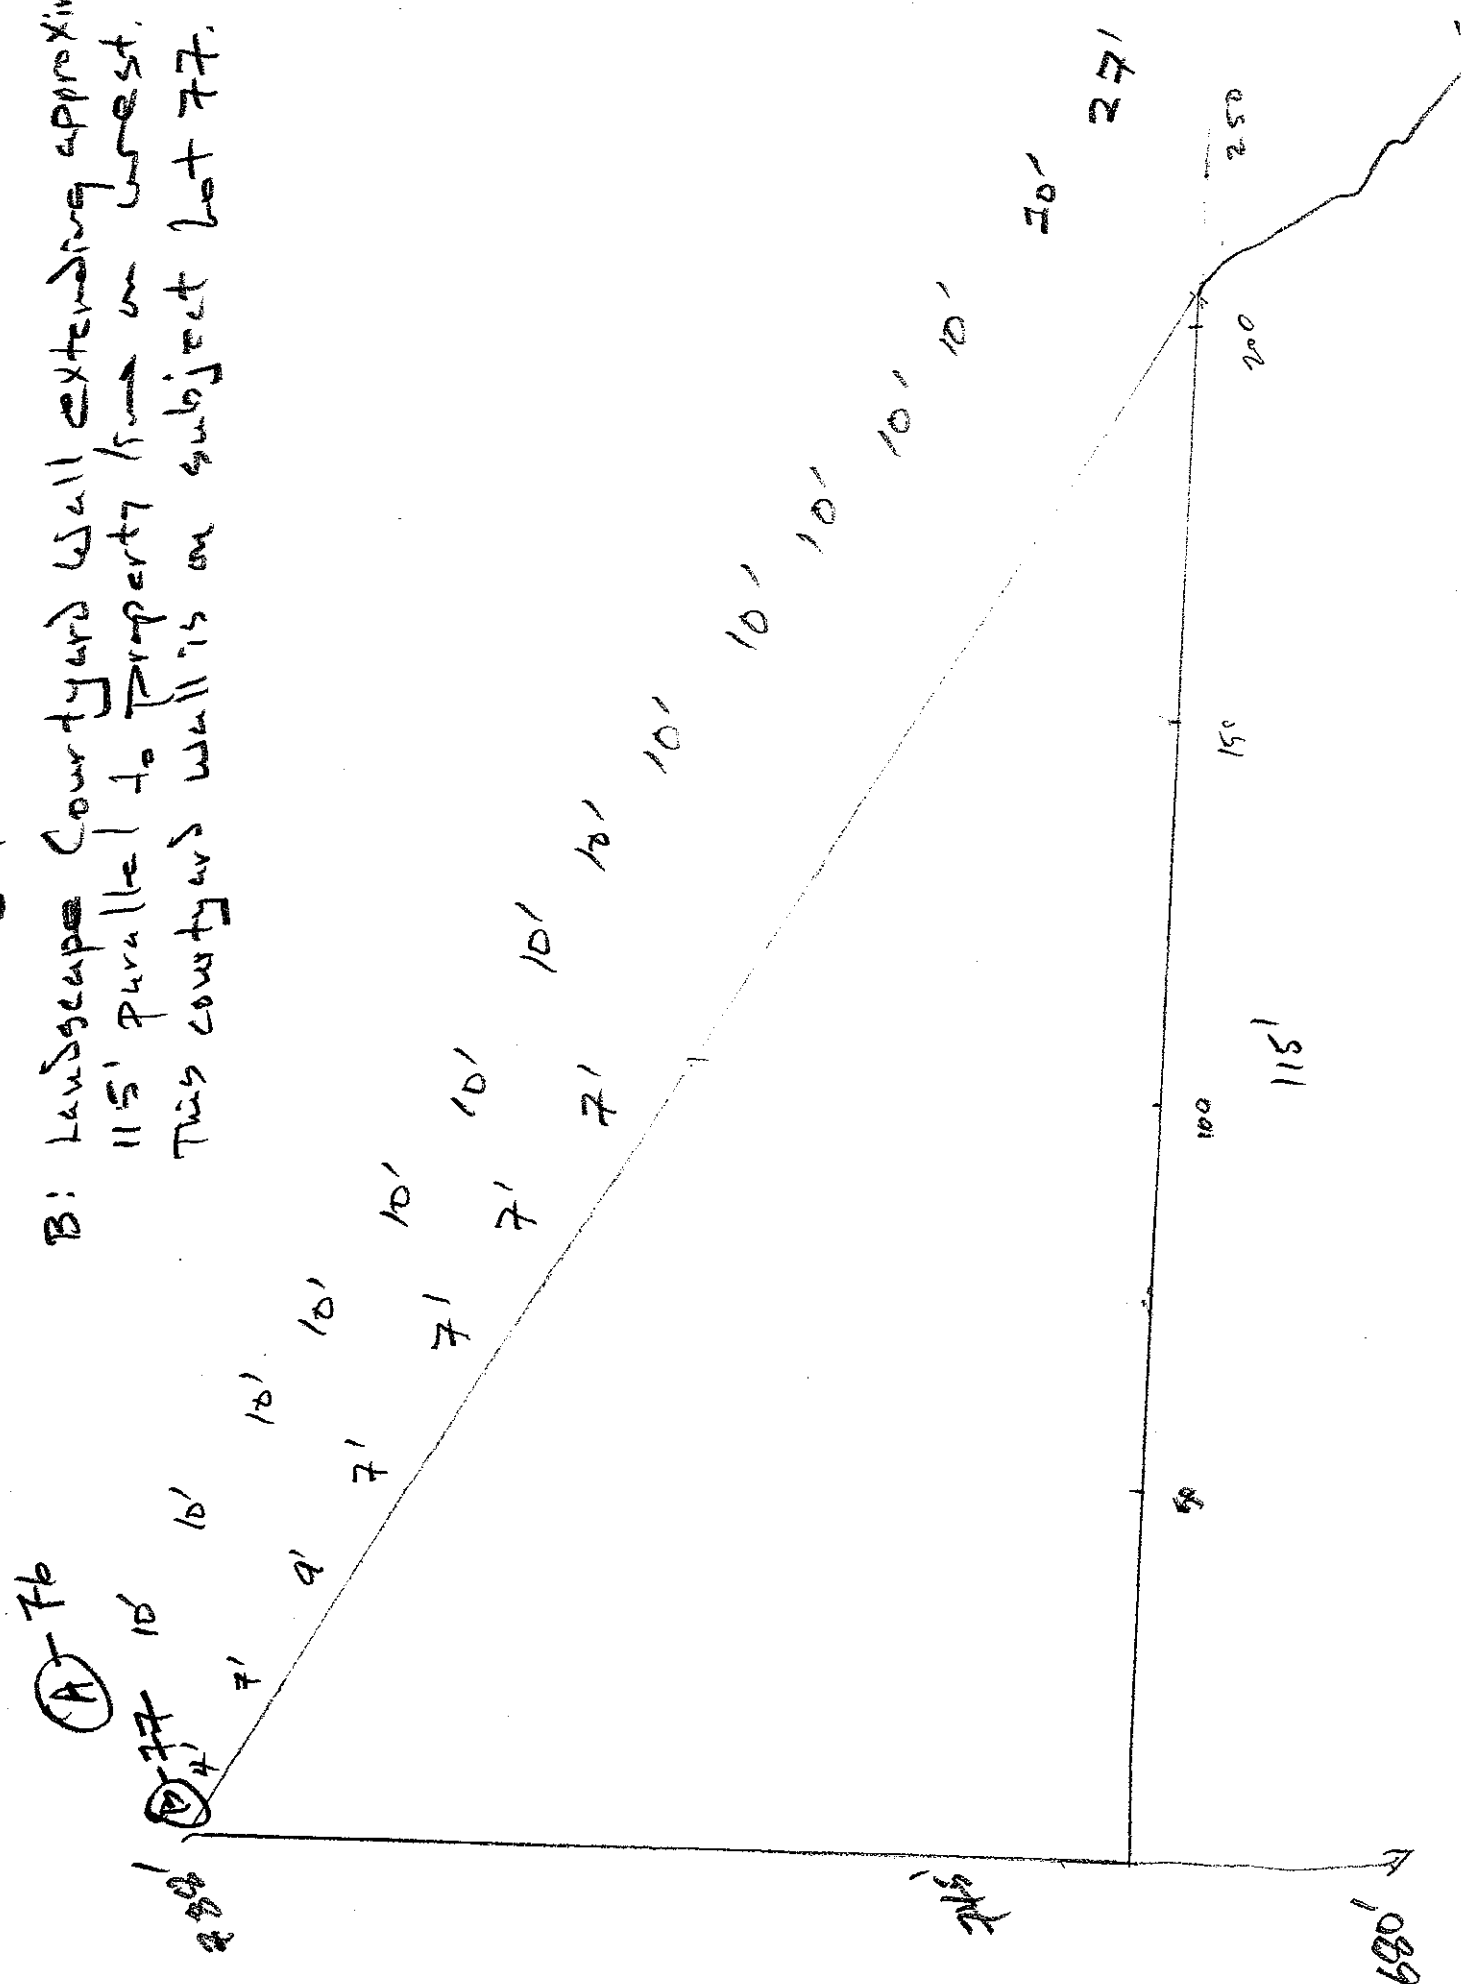 B: Landscape Courtyard Wall extending approxi
115' parallel to Property line on west.
This courtyard wall is on subject Lot 77.
A - 76
B - 77
10' 10' 10' 10' 10' 10' 10' 10' 10' 10' 10' 10' 10'
20' 27'
4' 7' 9' 7' 7' 7' 7'
50 100 150 200 250
115'
680'